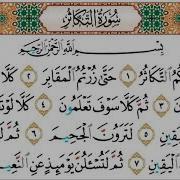 سُورَةُ التَّكَاثُرِ
بِسْمِ اللَّهِ الرَّحْمَٰنِ الرَّحِيمِ
كُمُ التَّكَاثُرُ ١ حَتَّىٰ زُرْتُمُ الْمَقَابِرَ ٢ كَلَّا
٣ ثُمَّ كَلَّا سَوْفَ تَعْلَمُونَ ٤ كَلَّا لَوْ
الْيَقِينِ ٥ لَتَرَوُنَّ الْجَحِيمَ ٦ ثُمَّ
الْيَقِينِ ٧ ثُمَّ لَتُسْأَلُنَّ يَوْمَئِذٍ عَنِ